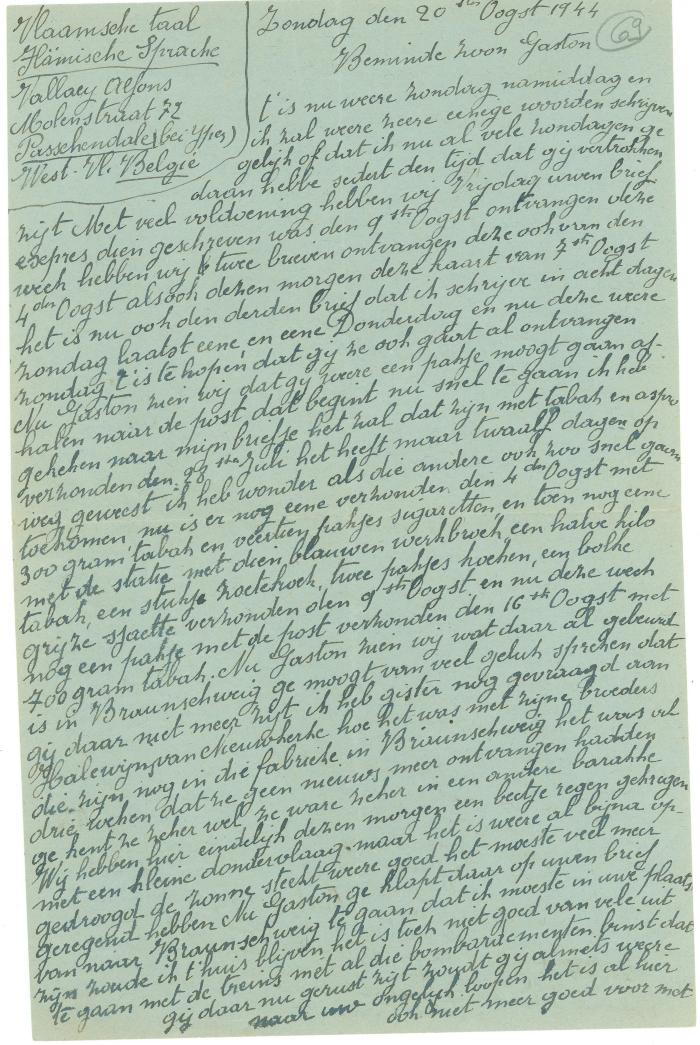 Vlaamsche taal
Flämische Sprache
Vallaey Alfons
Molenstraat 72
Passchendale (bei Yper)
West-Vl. Belgie
Zondag den 20 sten Oogst 1944
69
Beminde zoon Gaston
t'is nu weere zondag namiddag en
ik zal weere zeere eenege woorden schrijven
gelijk of dat ik nu al vele zondagen ge
daan hebbe sedert den tijd dat gij vertrokken
zijt Met veel voldoening hebben wij Vrijdag uwen brief
expres dien geschreven was den 9 sten Oogst ontvangen deze
week hebben wij twee brieven ontvangen deze ook van den
4 den Oogst alsook dezen morgen deze kaart van 7 sten Oogst
het is nu ook den derden brief dat ik schrijve in acht dagen
zondag laatst eene en eene Donderdag en nu deze weere
zondag t'is te hopen dat gij ze ook gaat al ontvangen
Nu Gaston zien wij dat gij weere een pakje moogt gaan af-
halen naar de post, dat begint nu snel te gaan ik heb
gekeken naar mijn briefje het zal dat zijn met tabak en aspro
verzonden den 22 sten Juli het heeft maar twaalf dagen op
weg geweest ik heb wonder als die andere ook zoo snel gaan
toekomen nu is er nog eene verzonden den 4 den Oogst met
300 gram tabak en veertien pakjes sugaretten en toen nog eene
met de statie met dien blauwen werkbroek een halve kilo
tabak, een stukje zoetekoek, twee pakjes koeken, een bolke
grijze sjaette verzonden den 9 sten Oogst en nu deze week
nog een pakje met de post verzonden den 16 sten Oogst met
700 gram tabak. Nu Gaston zien wij wat daar al gebeurd
is in Braunschweig ge moogt van veel geluk spreken dat
gij daar niet meer zijt ik heb gister nog gevraagd aan
Halewijn, van Nieuwkerke hoe het was met zijne broeders
die zijn nog in die fabrieke in Braunschweig het was al
drie weken dat ze geen nieuws meer ontvangen hadden
ge kent ze zeker wel ze ware zeker in een andere barakke
Wij hebben hier eindelijk dezen morgen een beetje regen gekregen
met een kleine dondervlaag. maar het is weere al bijna op-
gedroogd de zonne steekt weere goed het moeste veel meer
geregend hebben Nu Gaston ge klapt daar op uwen brief
van naar Braunschweig te gaan dat ik moeste in uwe plaats
zijn zoude ik t'huis blijven het is toch niet goed van vele uit
te gaan met de treins met al die bombardementen binst dat
gij daar nu gerust zijt zoudt gij almets weere
naar uw ongeluk loopen het is al hier
ook niet meer goed voor met